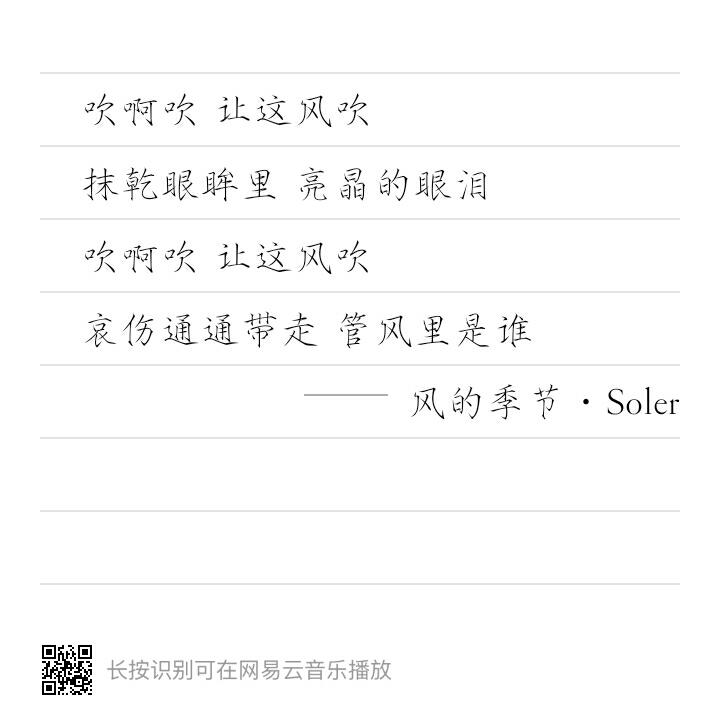 吹啊吹 让这风吹
抹乾眼眸里 亮晶的眼泪
吹啊吹 让这风吹
哀伤通通带走 管风里是谁
—— 风的季节·Soler
长按识别可在网易云音乐播放